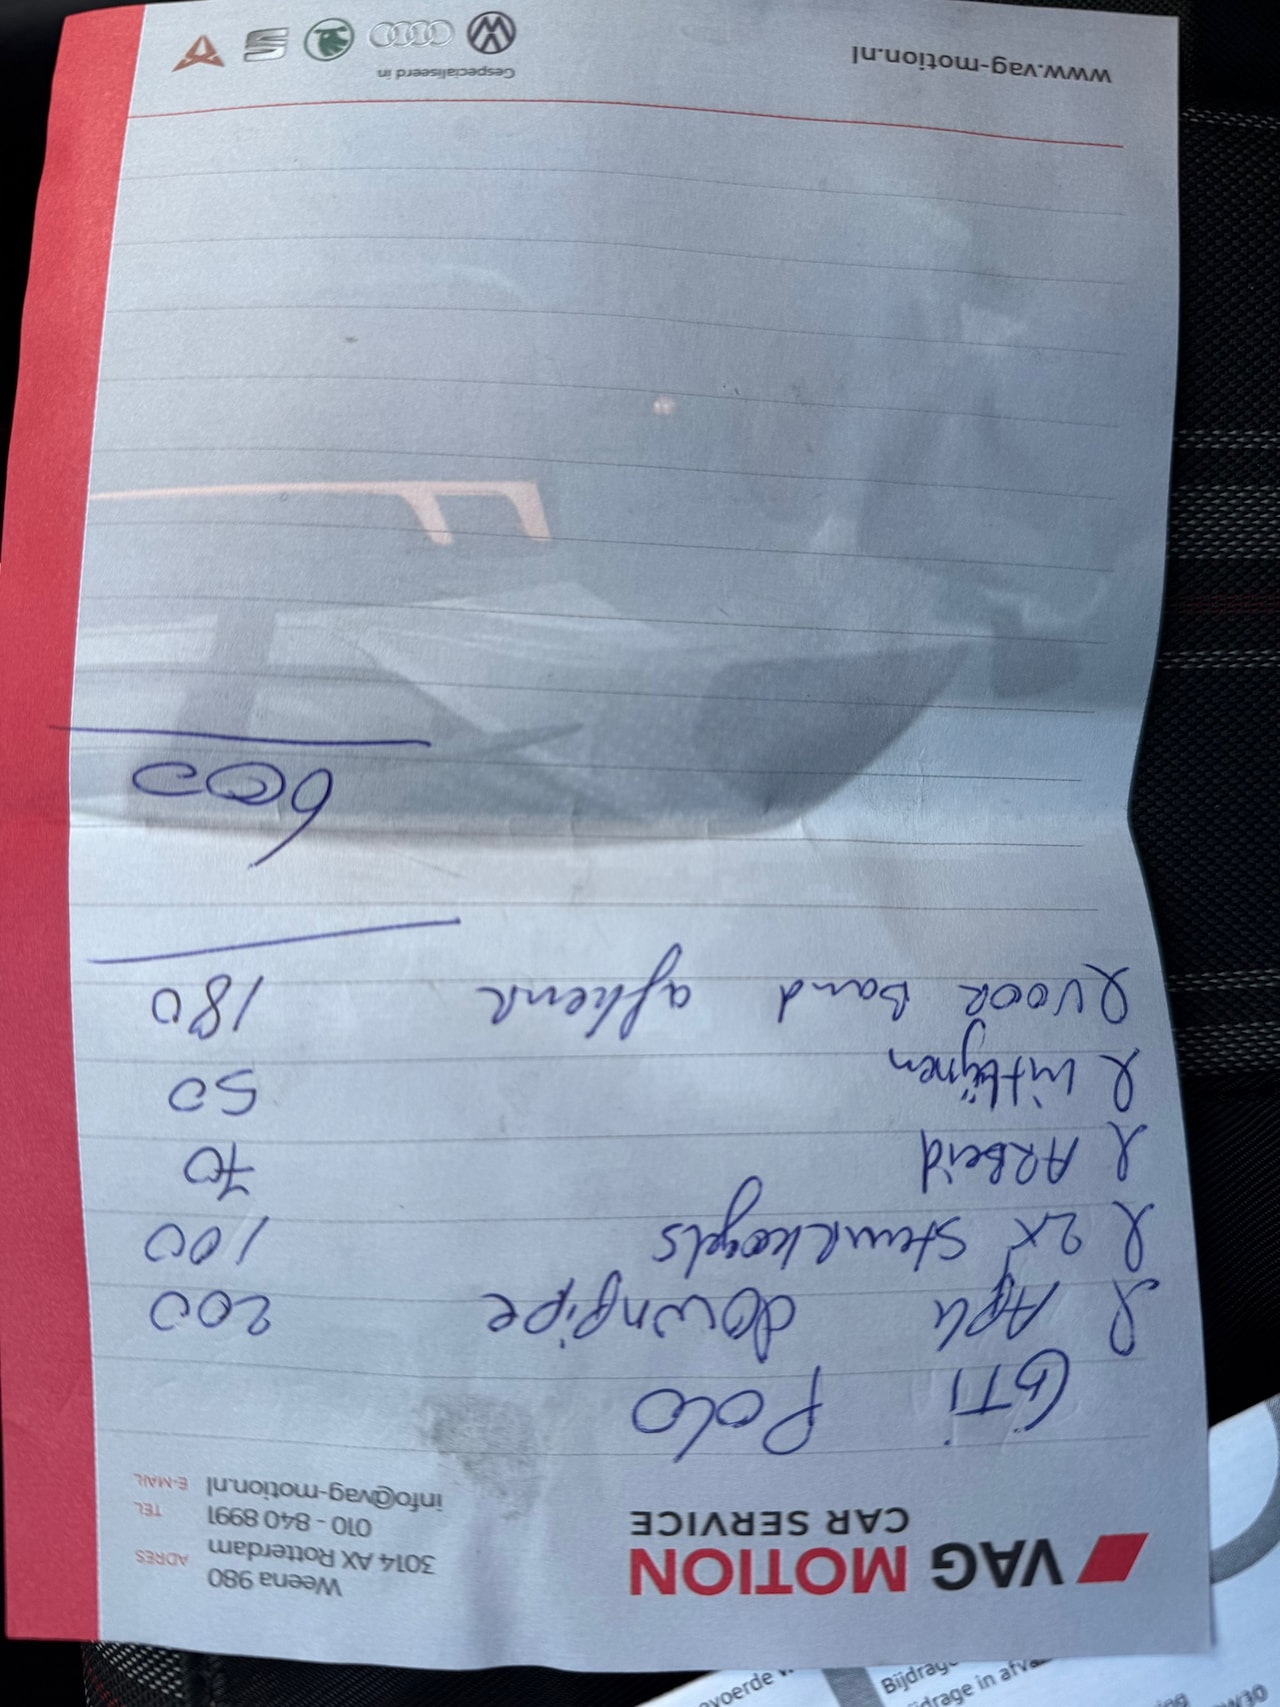 VAG MOTION
CAR SERVICE
Weena 980
ADRES 3014 AX Rotterdam
TEL 010 - 840 8991
E-MAIL info@vag-motion.nl
GTI Polo
downpipe 200
2x stuurkogels 100
Arbeid 70
uitlijnen 50
voor Band 180
600
www.vag-motion.nl
Gespecialiseerd in
Bijdrage
drage in afva